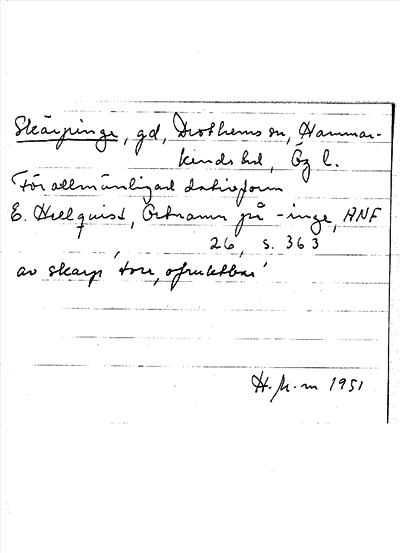 Skärpinge, gd, Drothems sn, Hammar-
kinds hd, Ög l.
Förallmänligad dativform
E. Hellquist, Ortnamn på -inge, ANF
26, s. 363
av skarp 'torr, ofruktbar'
H. M-m 1951